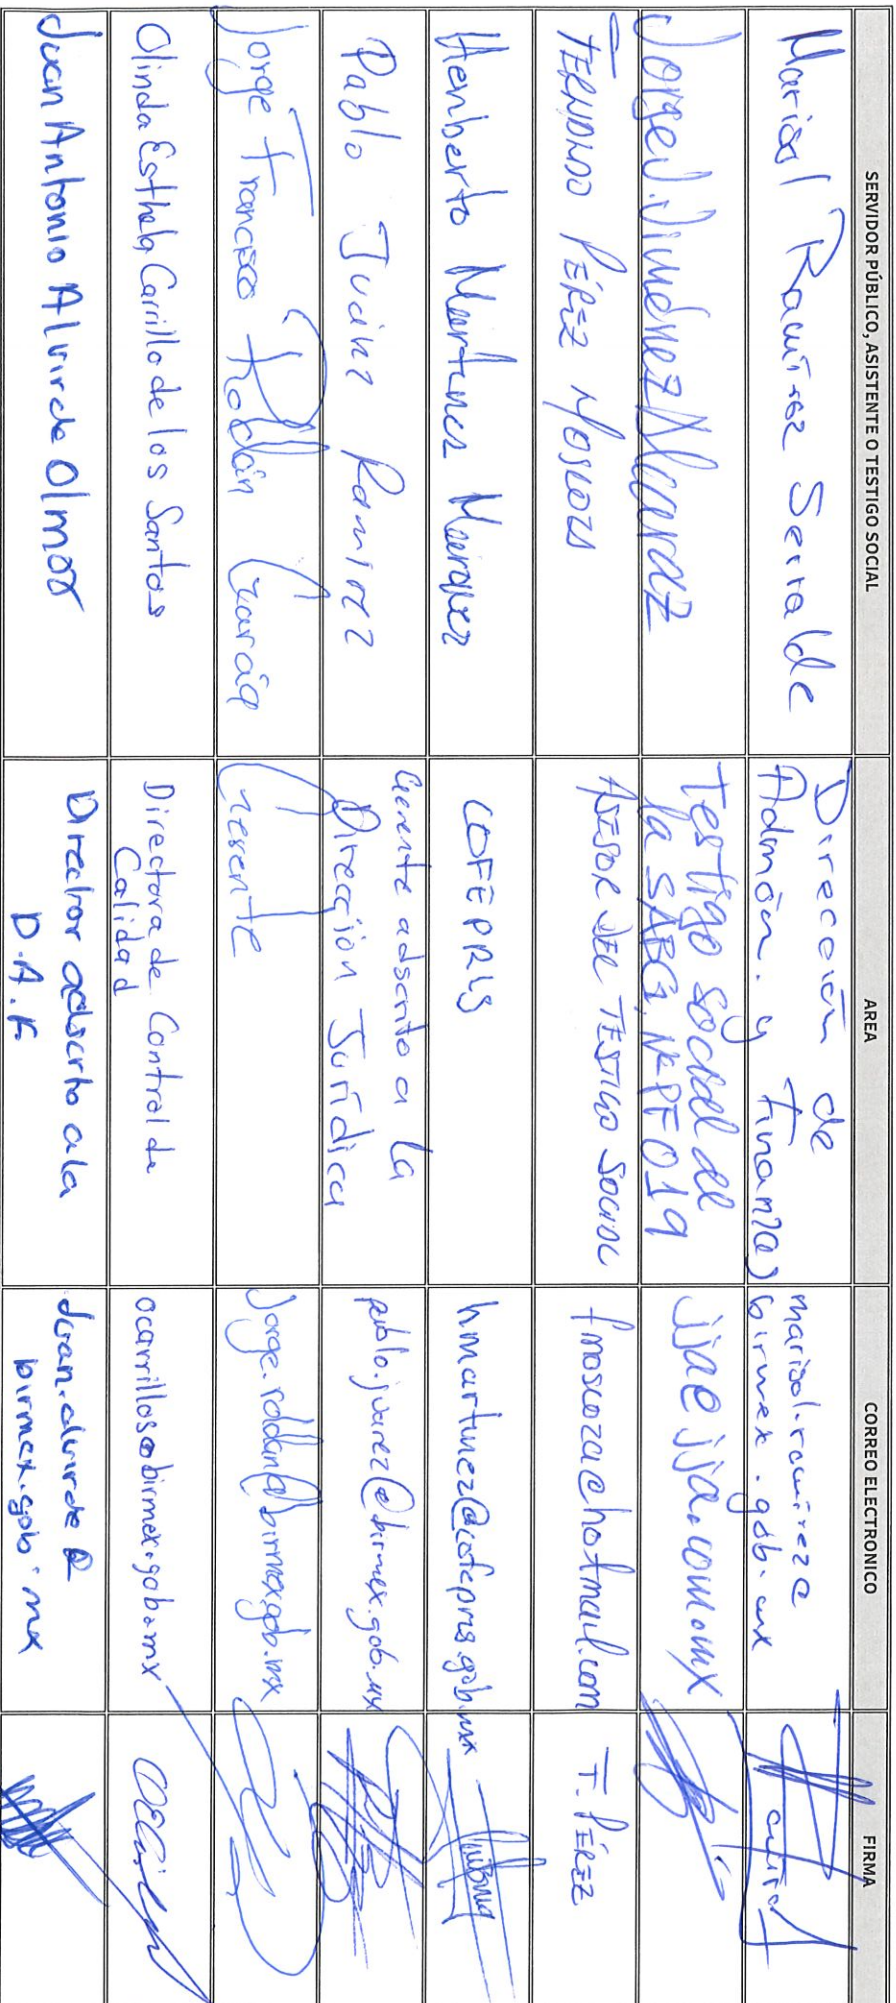 SERVIDOR PÚBLICO, ASISTENTE O TESTIGO SOCIAL AREA CORREO ELECTRONICO FIRMA
Marisol Ramírez Serralde
Dirección de
Admón. y Finanzas
marisol.ramirez@
birmex.gob.mx
Jorge J. Jiménez Alcaraz
Testigo social del
la SABG, N° PF019
jja@jja.com.mx
FERNANDO PÉREZ MOSCOZA
ASESOR DEL TESTIGO SOCIAL
fmoscoza@hotmail.com
F. PÉREZ
Hemberto Martinez Marquez
COFEPRIS
hmartinez@cofepris.gob.mx
Pablo Juárez Ramirez
Gerente adscrito a la
Dirección Jurídica
pablo.juarez@birmex.gob.mx
Jorge Francisco Roldán García
Gerente
Jorge.roldan@birmex.gob.mx
Olinda Esthela Carrillo de los Santos
Directora de Control de
Calidad
ocarrillos@birmex.gob.mx
Juan Antonio Alvirde Olmos
Director adscrito a la
D.A.F.
Juan.alvirde@
birmex.gob.mx